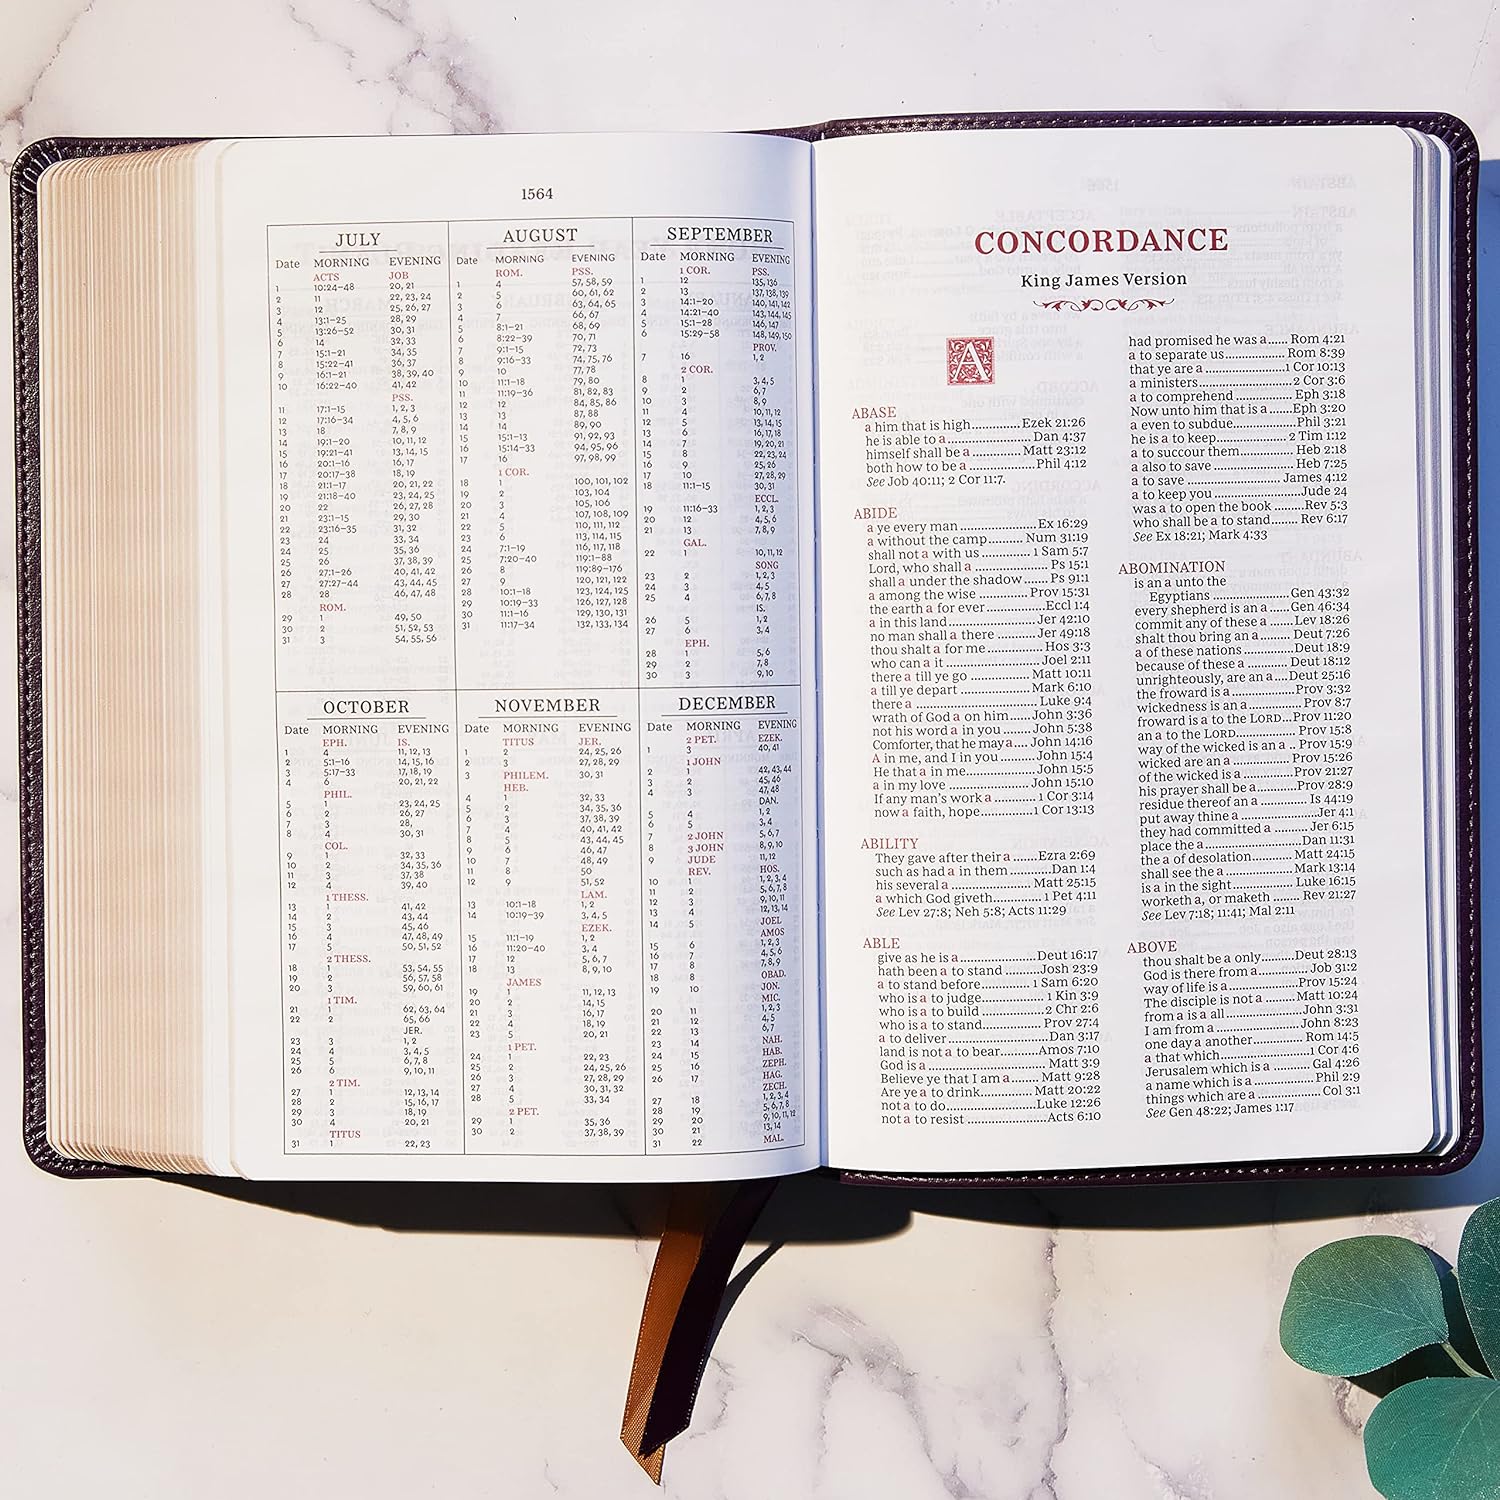 1564
JULY
Date MORNING EVENING
ACTS JOB
1 10:24–48 20, 21
2 11 22, 23, 24
3 12 25, 26, 27
4 13:1–25 28, 29
5 13:26–52 30, 31
6 14 32, 33
7 15:1–21 34, 35
8 15:22–41 36, 37
9 16:1–21 38, 39, 40
10 16:22–40 41, 42
PSS.
11 17:1–15 1, 2, 3
12 17:16–34 4, 5, 6
13 18 7, 8, 9
14 19:1–20 10, 11, 12
15 19:21–41 13, 14, 15
16 20:1–16 16, 17
17 20:17–38 18, 19
18 21:1–17 20, 21, 22
19 21:18–40 23, 24, 25
20 22 26, 27, 28
21 23:1–15 29, 30
22 23:16–35 31, 32
23 24 33, 34
24 25 35, 36
25 26 37, 38, 39
26 27:1–26 40, 41, 42
27 27:27–44 43, 44, 45
28 28 46, 47, 48
ROM.
29 1 49, 50
30 2 51, 52, 53
31 3 54, 55, 56
AUGUST
Date MORNING EVENING
ROM. PSS.
1 4 57, 58, 59
2 5 60, 61, 62
3 6 63, 64, 65
4 7 66, 67
5 8:1–21 68, 69
6 8:22–39 70, 71
7 9:1–15 72, 73
8 9:16–33 74, 75, 76
9 10 77, 78
10 11:1–18 79, 80
11 11:19–36 81, 82, 83
12 12 84, 85, 86
13 13 87, 88
14 14 89, 90
15 15:1–13 91, 92, 93
16 15:14–33 94, 95, 96
17 16 97, 98, 99
1 COR.
18 1 100, 101, 102
19 2 103, 104
20 3 105, 106
21 4 107, 108, 109
22 5 110, 111, 112
23 6 113, 114, 115
24 7:1–19 116, 117, 118
25 7:20–40 119:1–88
26 8 119:89–176
27 9 120, 121, 122
28 10:1–18 123, 124, 125
29 10:19–33 126, 127, 128
30 11:1–16 129, 130, 131
31 11:17–34 132, 133, 134
SEPTEMBER
Date MORNING EVENING
1 COR. PSS.
1 12 135, 136
2 13 137, 138, 139
3 14:1–20 140, 141, 142
4 14:21–40 143, 144, 145
5 15:1–28 146, 147
6 15:29–58 148, 149, 150
PROV.
7 16 1, 2
2 COR.
8 1 3, 4, 5
9 2 6, 7
10 3 8, 9
11 4 10, 11, 12
12 5 13, 14, 15
13 6 16, 17, 18
14 7 19, 20, 21
15 8 22, 23, 24
16 9 25, 26
17 10 27, 28, 29
18 11:1–15 30, 31
ECCL.
19 11:16–33 1, 2, 3
20 12 4, 5, 6
21 13 7, 8, 9
GAL.
22 1 10, 11, 12
SONG
23 2 1, 2, 3
24 3 4, 5
25 4 6, 7, 8
IS.
26 5 1, 2
27 6 3, 4
EPH.
28 1 5, 6
29 2 7, 8
30 3 9, 10
OCTOBER
Date MORNING EVENING
EPH. IS.
1 4 11, 12, 13
2 5:1–16 14, 15, 16
3 5:17–33 17, 18, 19
4 6 20, 21, 22
PHIL.
5 1 23, 24, 25
6 2 26, 27
7 3 28,
8 4 30, 31
COL.
9 1 32, 33
10 2 34, 35, 36
11 3 37, 38
12 4 39, 40
1 THESS.
13 1 41, 42
14 2 43, 44
15 3 45, 46
16 4 47, 48, 49
17 5 50, 51, 52
2 THESS.
18 1 53, 54, 55
19 2 56, 57, 58
20 3 59, 60, 61
1 TIM.
21 1 62, 63, 64
22 2 65, 66
JER.
23 3 1, 2
24 4 3, 4, 5
25 5 6, 7, 8
26 6 9, 10, 11
2 TIM.
27 1 12, 13, 14
28 2 15, 16, 17
29 3 18, 19
30 4 20, 21
TITUS
31 1 22, 23
NOVEMBER
Date MORNING EVENING
TITUS JER.
1 2 24, 25, 26
2 3 27, 28, 29
3 PHILEM. 30, 31
HEB.
4 1 32, 33
5 2 34, 35, 36
6 3 37, 38, 39
7 4 40, 41, 42
8 5 43, 44, 45
9 6 46, 47
10 7 48, 49
11 8 50
12 9 51, 52
LAM.
13 10:1–18 1, 2
14 10:19–39 3, 4, 5
EZEK.
15 11:1–19 1, 2
16 11:20–40 3, 4
17 12 5, 6, 7
18 13 8, 9, 10
JAMES
19 1 11, 12, 13
20 2 14, 15
21 3 16, 17
22 4 18, 19
23 5 20, 21
1 PET.
24 1 22, 23
25 2 24, 25, 26
26 3 27, 28, 29
27 4 30, 31, 32
28 5 33, 34
2 PET.
29 1 35, 36
30 2 37, 38, 39
DECEMBER
Date MORNING EVENING
2 PET. EZEK.
1 3 40, 41
1 JOHN
2 1 42, 43, 44
3 2 45, 46
4 3 47, 48
DAN.
5 4 1, 2
6 5 3, 4
7 2 JOHN 5, 6, 7
8 3 JOHN 8, 9, 10
9 JUDE 11, 12
REV. HOS.
10 1 1, 2, 3, 4
11 2 5, 6, 7, 8
12 3 9, 10, 11
13 4 12, 13, 14
14 5 JOEL
AMOS
15 6 1, 2, 3
16 7 4, 5, 6
17 8 7, 8, 9
18 8 OBAD.
19 10 JON.
MIC.
20 11 1, 2, 3
21 12 4, 5
22 13 6, 7
23 14 NAH.
24 15 HAB.
25 16 ZEPH.
26 17 HAG.
ZECH.
27 18 1, 2, 3, 4
28 19 5, 6, 7, 8
29 20 9, 10, 11, 12
30 21 13, 14
31 22 MAL.
CONCORDANCE
King James Version
A
ABASE
a him that is high............ Ezek 21:26
he is able to a..................... Dan 4:37
himself shall be a ............. Matt 23:12
both how to be a ................ Phil 4:12
See Job 40:11; 2 Cor 11:7.
ABIDE
a ye every man .................. Ex 16:29
a without the camp.......... Num 31:19
shall not a with us ............ 1 Sam 5:7
Lord, who shall a ................ Ps 15:1
shall a under the shadow...... Ps 91:1
a among the wise ............ Prov 15:31
the earth a for ever .............. Eccl 1:4
a in this land .................... Jer 42:10
no man shall a there .......... Jer 49:18
thou shalt a for me .............. Hos 3:3
who can a it ........................ Joel 2:11
there a till ye go .............. Matt 10:11
a till ye depart .................. Mark 6:10
there a .............................. Luke 9:4
wrath of God a on him...... John 3:36
not his word a in you ........ John 5:38
Comforter, that he may a.... John 14:16
A in me, and I in you ........ John 15:4
He that a in me.................. John 15:5
a in my love .................... John 15:10
If any man's work a .......... 1 Cor 3:14
now a faith, hope.............. 1 Cor 13:13
ABILITY
They gave after their a ...... Ezra 2:69
such as had a in them .......... Dan 1:4
his several a .................... Matt 25:15
a which God giveth............ 1 Pet 4:11
See Lev 27:8; Neh 5:8; Acts 11:29
ABLE
give as he is a .................. Deut 16:17
hath been a to stand .......... Josh 23:9
a to stand before.............. 1 Sam 6:20
who is a to judge................ 1 Kin 3:9
who is a to build ................ 2 Chr 2:6
who is a to stand................ Prov 27:4
a to deliver ........................ Dan 3:17
land is not a to bear.......... Amos 7:10
God is a ............................ Matt 3:9
Believe ye that I am a........ Matt 9:28
Are ye a to drink.............. Matt 20:22
not a to do........................ Luke 12:26
not a to resist .................... Acts 6:10
had promised he was a...... Rom 4:21
a to separate us.................. Rom 8:39
that ye are a .................... 1 Cor 10:13
a ministers........................ 2 Cor 3:6
a to comprehend ................ Eph 3:18
Now unto him that is a ...... Eph 3:20
a even to subdue................ Phil 3:21
he is a to keep.................. 2 Tim 1:12
a to succour them................ Heb 2:18
a also to save .................... Heb 7:25
a to save .......................... James 4:12
a to keep you ...................... Jude 24
was a to open the book ........ Rev 5:3
who shall be a to stand........ Rev 6:17
See Ex 18:21; Mark 4:33
ABOMINATION
is an a unto the
Egyptians ...................... Gen 43:32
every shepherd is an a ...... Gen 46:34
commit any of these a ........ Lev 18:26
shalt thou bring an a.......... Deut 7:26
a of these nations .............. Deut 18:9
because of these a ............ Deut 18:12
unrighteously, are an a.... Deut 25:16
the froward is a ................ Prov 3:32
wickedness is an a.............. Prov 8:7
froward is a to the LORD.... Prov 11:20
an a to the LORD.............. Prov 15:8
way of the wicked is an a .. Prov 15:9
wicked are an a ................ Prov 15:26
of the wicked is a .............. Prov 21:27
his prayer shall be a............ Prov 28:9
residue thereof an a .............. Is 44:19
put away thine a .................. Jer 4:1
they had committed a .......... Jer 6:15
place the a........................ Dan 11:31
the a of desolation............ Matt 24:15
shall see the a .................. Mark 13:14
is a in the sight................ Luke 16:15
worketh a, or maketh ........ Rev 21:27
See Lev 7:18; 11:41; Mal 2:11
ABOVE
thou shalt be a only.......... Deut 28:13
God is there from a.............. Job 31:2
way of life is a ................ Prov 15:24
The disciple is not a ........ Matt 10:24
from a is a all .................. John 3:31
I am from a ...................... John 8:23
one day a another.............. Rom 14:5
a that which ...................... 1 Cor 4:6
Jerusalem which is a .......... Gal 4:26
a name which is a ................ Phil 2:9
things which are a................ Col 3:1
See Gen 48:22; James 1:17